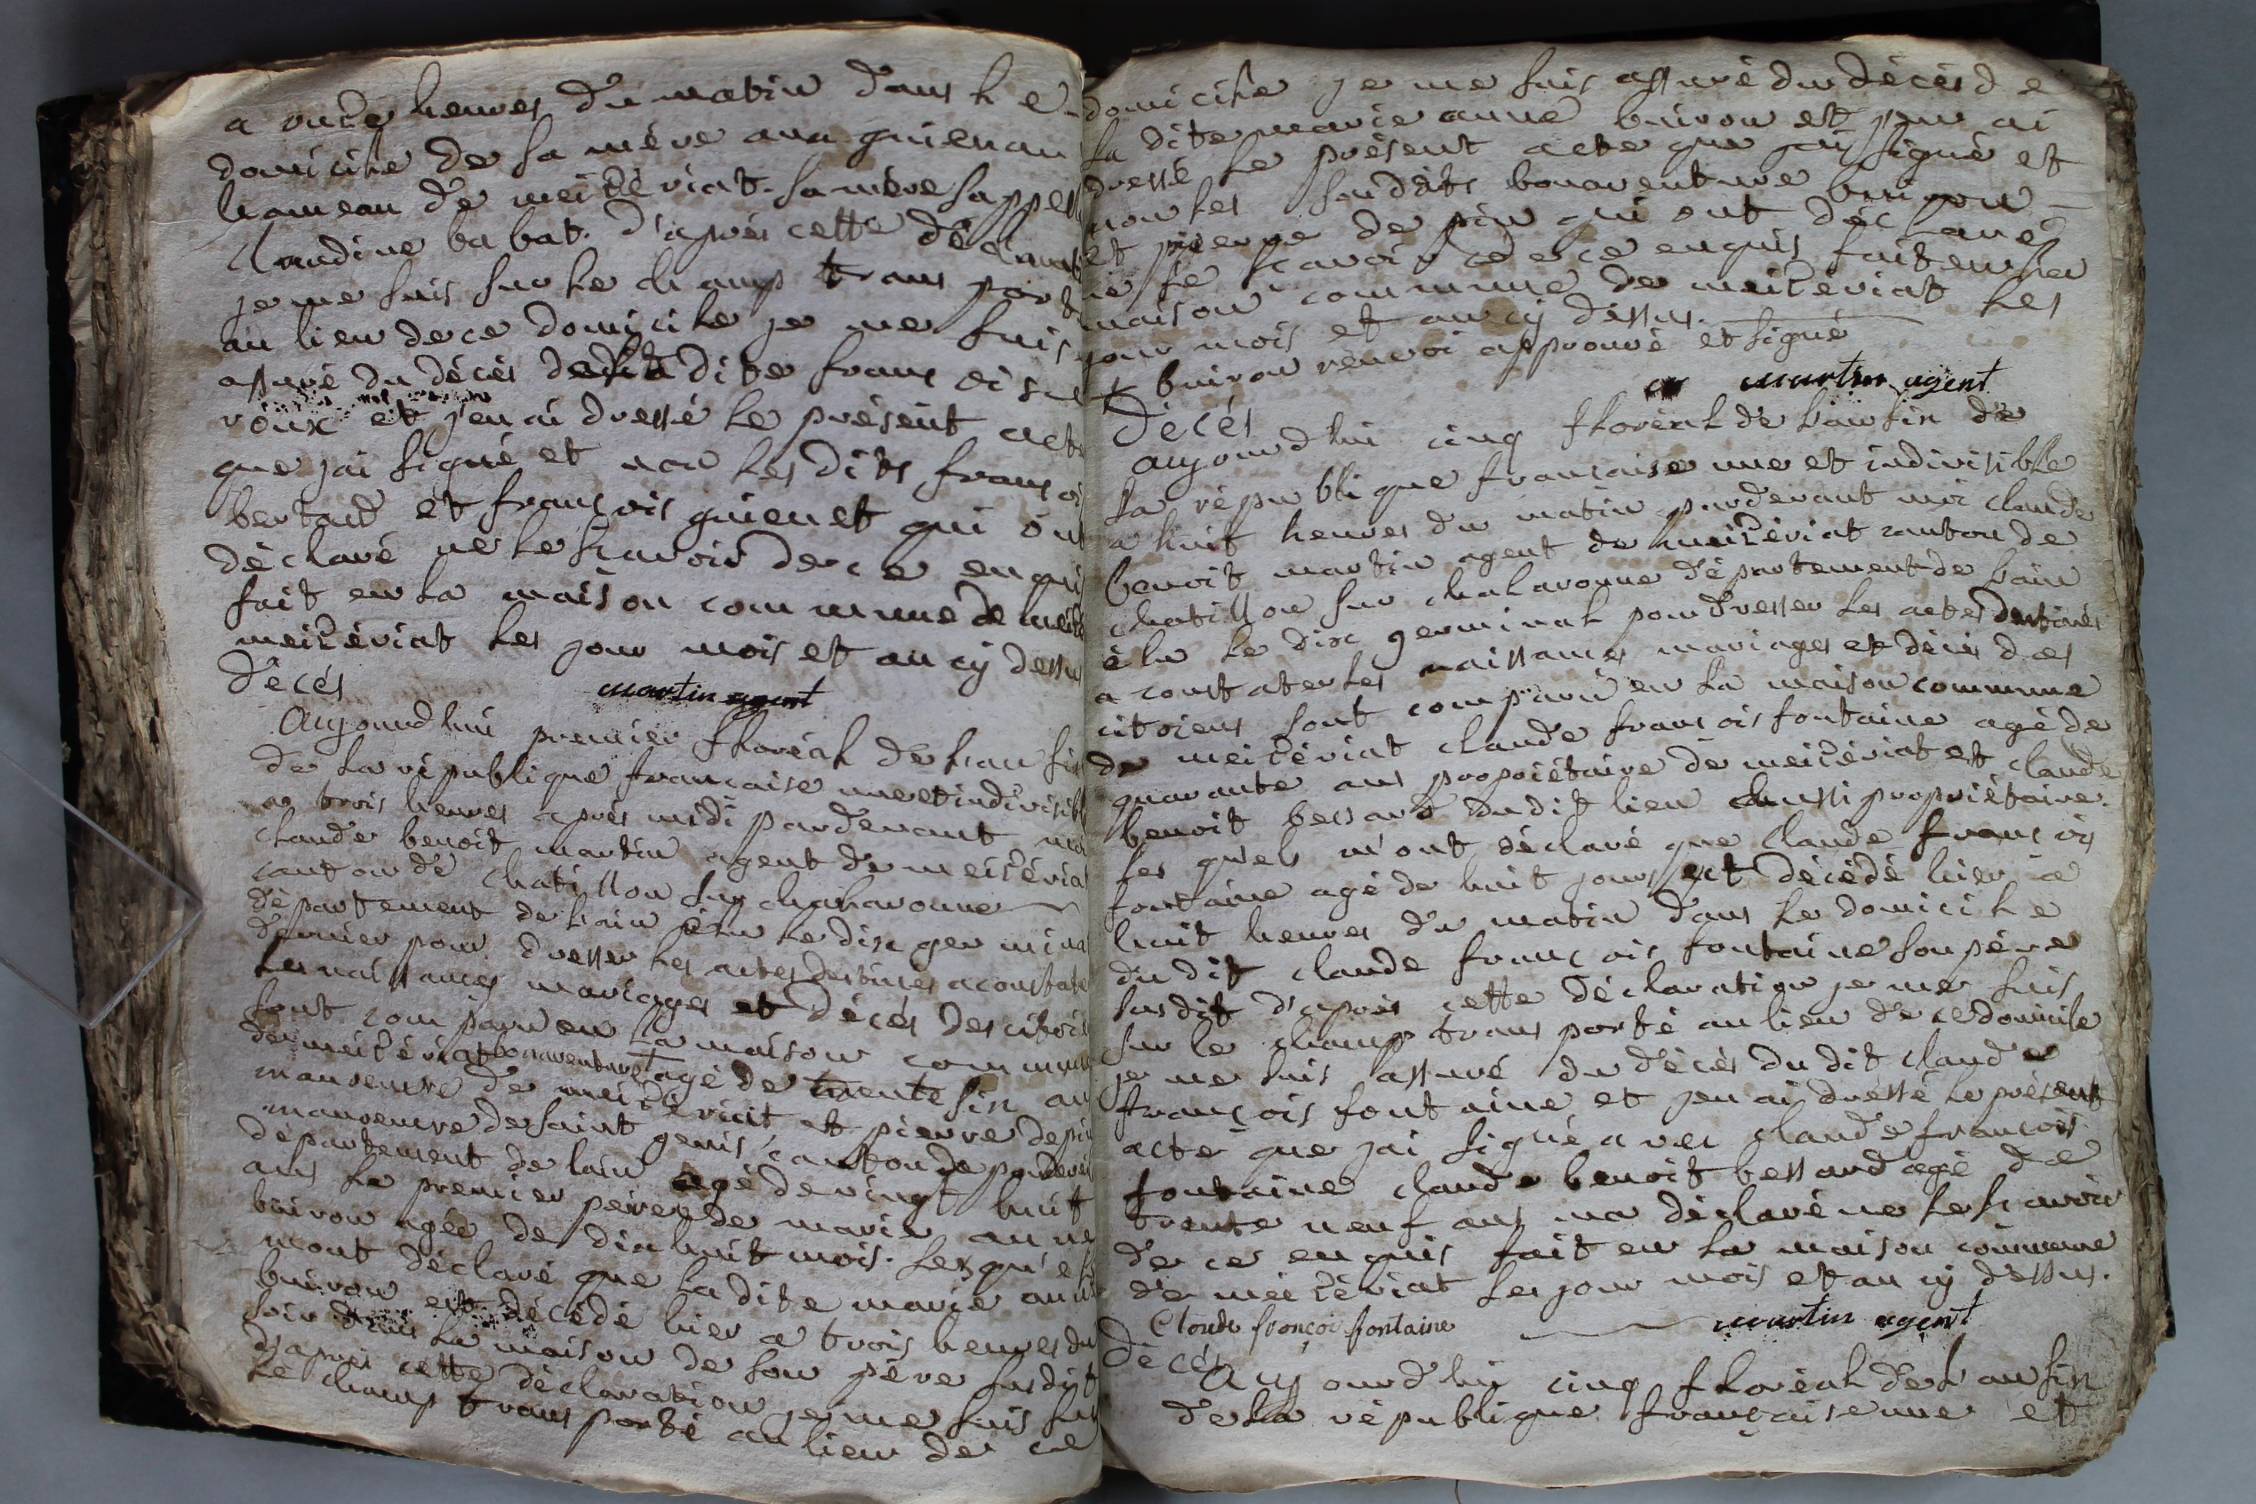 a onze heures du matin dans le
domicile de sa mère aux guienau
hameau de meizériat. sa mère sappell
Claudine babat. d'après cette déclarati
je me suis sur le champ trans porté
au lieu de ce domicile je me suis
assuré du décès de la dite françoise
roux et j'en ai dressé le présent acte
que jai signé et non les dits françois
bertand et françois guienet qui ont
déclaré ne le scavoir de ce enqui
fait en la maison commune de meiz
meizériat les jour mois et an cy dessu
décés
martin agent
Aujourdhui premier floréal de l'an six
de la république française une et indivisibl
a trois heures après midi pardevant moi
claude benoit martin agent de meizériat
canton de chatillon sur chalaronne
département de l'ain élu le dix germina
dernier pour dresser les actes destinés a constate
les naissances mariages et décés des citoie
sont comparu en la maison commun
de meizériat bonaventure + agé de trente six an
manoeuvre de meizériat et pierre depin
manoeuvre de saint genis canton de pondevei
département de lain agé de vingt huit
ans le premier peire de marie anne
buiron agée de dix huit mois. lesqu'els
mont déclaré que la dite marie anne
buiron est décédé hier a trois heures du
soir dans la maison de son père susdit
d'apres cette déclaration je me suis sur
le champ trans porté au lieu de ce
domicile je me suis assuré du décés de
la dite marie anne buiron et jen ai
dressé le présent acte que jai signé et
non les susdits bonaventure buiron
et pierre de pin qui ont déclaré
ne le scavoir de ce enquis fait en la
maison commune de meizeriat les
jour mois et an cy dessus.
+ buiron renvoi approuvé et signé
martin agent
Décés
aujourd'hui cinq floréal de l'an six de
la république française une et indivisible
a huit heures du matin pardevant moi claude
benoit martin agent de meizériat canton de
chatillon sur chalaronne département de l'ain
élu le dix germinal pour dresser les actes destinés
a constater les naissances mariages et décés des
citoiens sont comparu en la maison commune
de meizériat claude françois fontaine agé de
quarante ans propriétaire de meizériat et claude
benoit bessard dudit lieu aussi propriétaire.
les qu'els m'ont déclaré que claude françois
fontaine agé de huit jours est décédé hier a
huit heures du matin dans le domicile
du dit claude françois fontaine son père
susdit d'après cette déclaration je me suis
sur le champ trans porté au lieu de ce domicile
je me suis assuré du décés du dit claude
françois fontaine et jen ai dréssé le présent
acte que jai signé avec claude françois
fontaine claude benoit bessard agé de
trente neuf ans ma déclaré ne le scavoir
de ce enquis fait en la maison commune
de meizériat les jour mois et an cy dessus.
Claude françoi fontaine
martin agent
Décés
Aujourd'hui cinq floréal de l'an six
de la république française une et